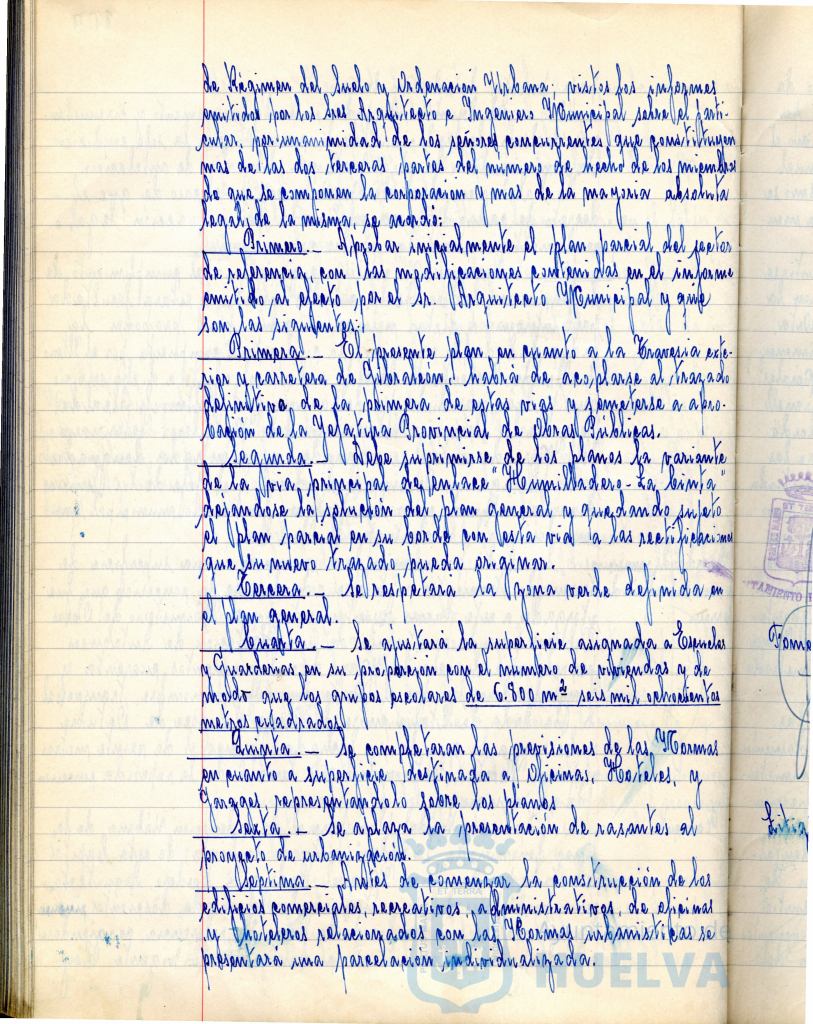 de Régimen del Suelo y Ordenación Urbana; vistos los informes
emitidos por los Sres Arquitecto e Ingeniero Municipal sobre el parti-
cular, por unanimidad de los señores concurrentes que constituyen
mas de las dos terceras partes del numero de hecho de los miembros
de que se componen la corporacion y mas de la mayoria absoluta
legal, de la misma, se acordó:
Primero.- Aprobar inicialmente el plan parcial del sector
de referencia, con las modificaciones contenidas en el informe
emitido al efecto por el Sr. Arquitecto Municipal y que
son las siguientes:
Primera.- El presente plan, en cuanto a la Travesia exte-
rior y carretera de Gibraleón, habrá de acoplarse al trazado
definitivo de la primera de estas vias y someterse a apro-
bación de la Jefatura Provincial de Obras Públicas.
Segunda.- Debe suprimirse de los planos la variante
de la via principal de enlace "Humilladero-La Cinta"
dejándose la solución del plan general y quedando sujeto
el plan parcial en su borde con esta via a las rectificaciones
que su nuevo trazado pueda originar.
Tercera.- Se respetará la zona verde definida en
el plan general.
Cuarta.- Se ajustará la superficie asignada a Escuelas
y Guarderias en su proporción con el numero de viviendas y de
modo que los grupos escolares de 6.800 m² seis mil ochocientos
metros cuadrados.
Quinta.- Se completaran las previsiones de las Normas
en cuanto a superficie destinada a Oficinas, Hoteles, y
Garages, representandolo sobre los planos
Sexta.- Se aplaza la presentación de rasantes al
proyecto de urbanización.
Septima.- Antes de comenzar la construcción de los
edificios comerciales, recreativos, administrativos, de oficinas
y hoteleros relacionados con las Normas urbanisticas se
presentará una parcelación individualizada.
HUELVA
Toma
Litig